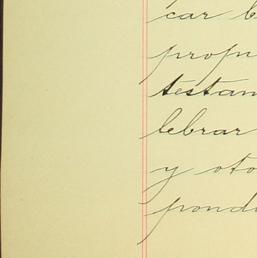 car b
propi
testam
lebrar
y oto
pondi